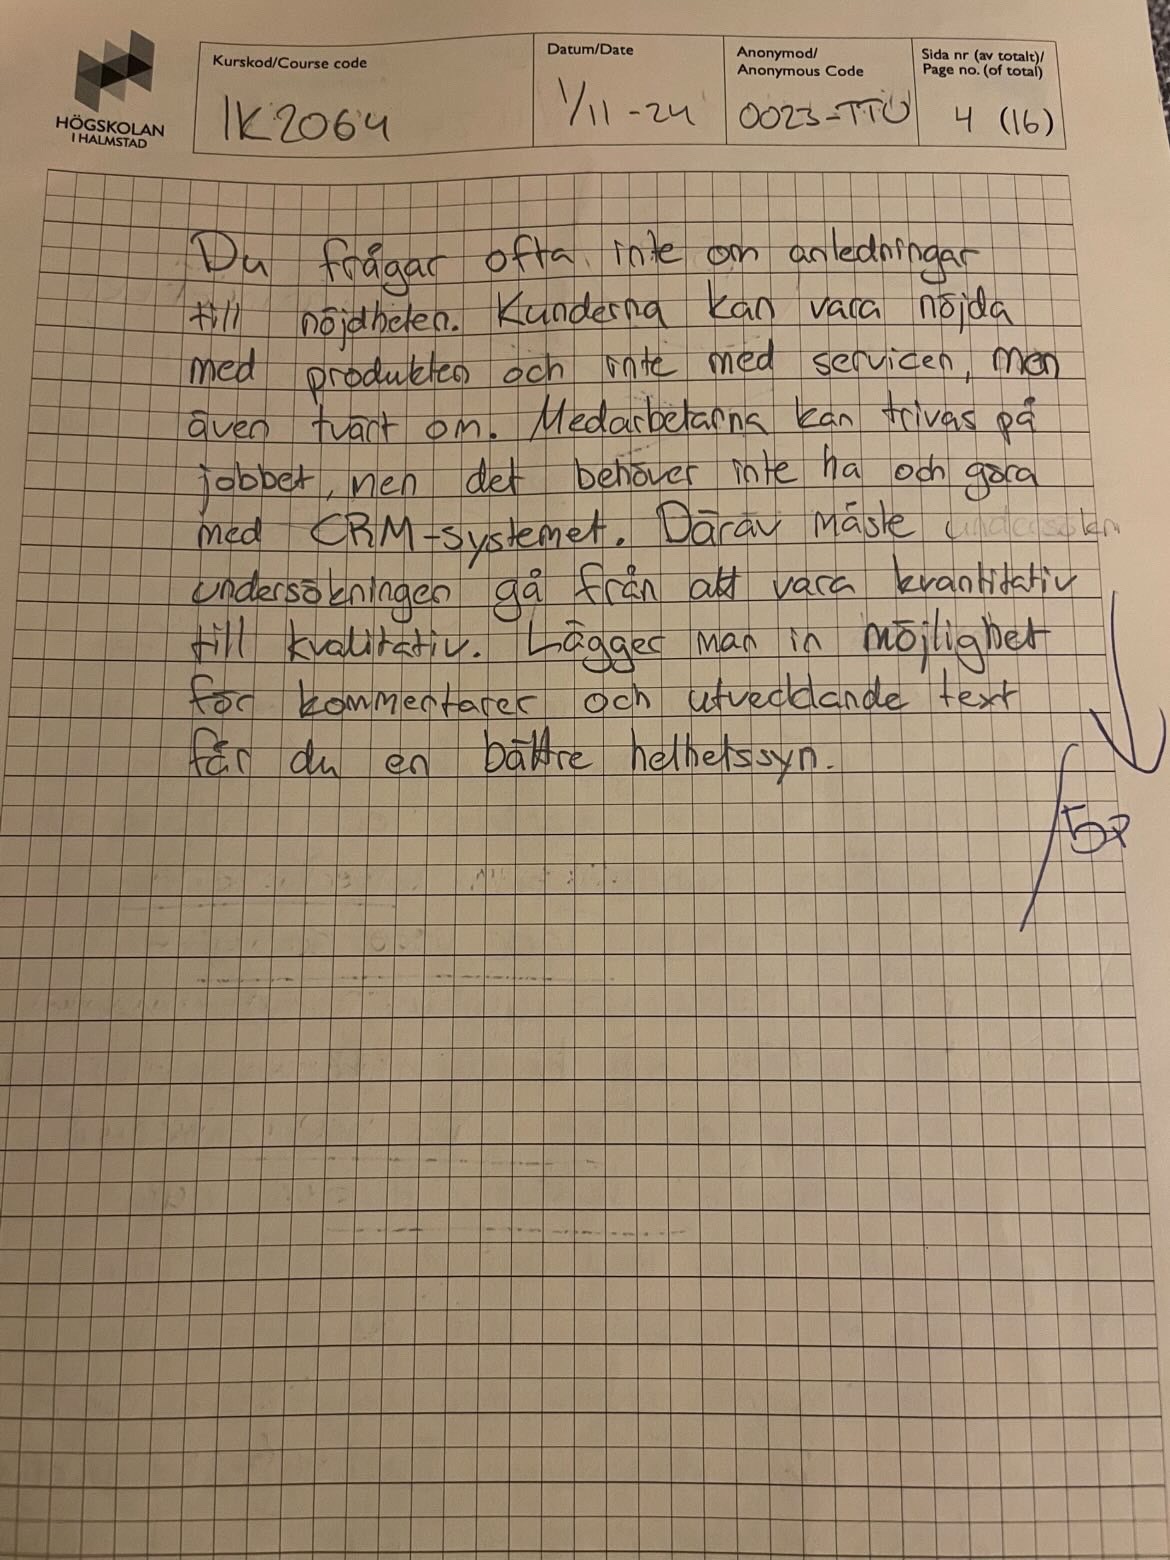 HÖGSKOLAN
I HALMSTAD
Kurskod/Course code
IK2064
Datum/Date
1/11-24
Anonymod/
Anonymous Code
0023-TTU
Sida nr (av totalt)/
Page no. (of total)
4 (16)
Du frågar ofta inte om anledningar
till nöjdheten. Kunderna kan vara nöjda
med produkten och inte med servicen, men
även tvärt om. Medarbetarna kan trivas på
jobbet, men det behöver inte ha och göra
med CRM-systemet. Därav måste
undersökningen gå från att vara kvantitativ
till kvalitativ. Lägger man in möjlighet
för kommentarer och utvecklande text
får du en bättre helhetssyn.
5p